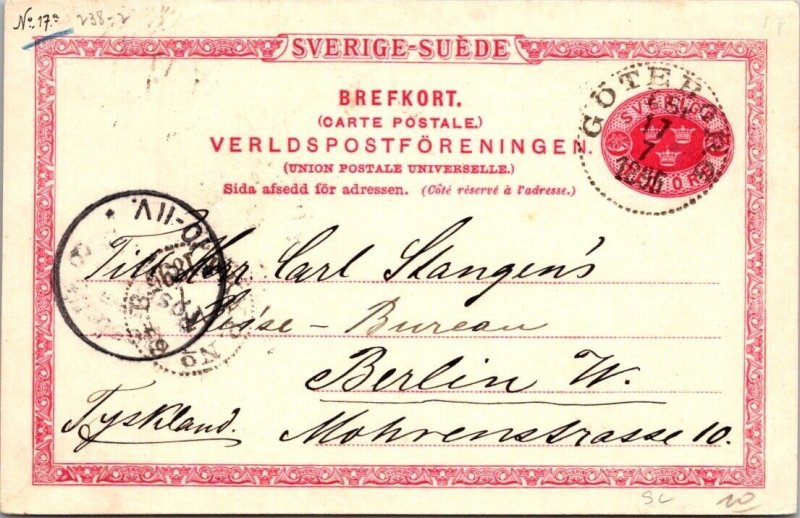 No. 17.a 238-2
SVERIGE-SUÈDE
BREFKORT.
(CARTE POSTALE.)
VERLDSPOSTFÖRENINGEN.
(UNION POSTALE UNIVERSELLE.)
Sida afsedd för adressen. (Côté réservé à l'adresse.)
GÖTEBORG
17
7
SVERIGE
ÖRE
Till Herr Carl Stangen's
Reise-Bureau
Berlin W.
Tyskland. Mohrenstrasse 10.
SC 10